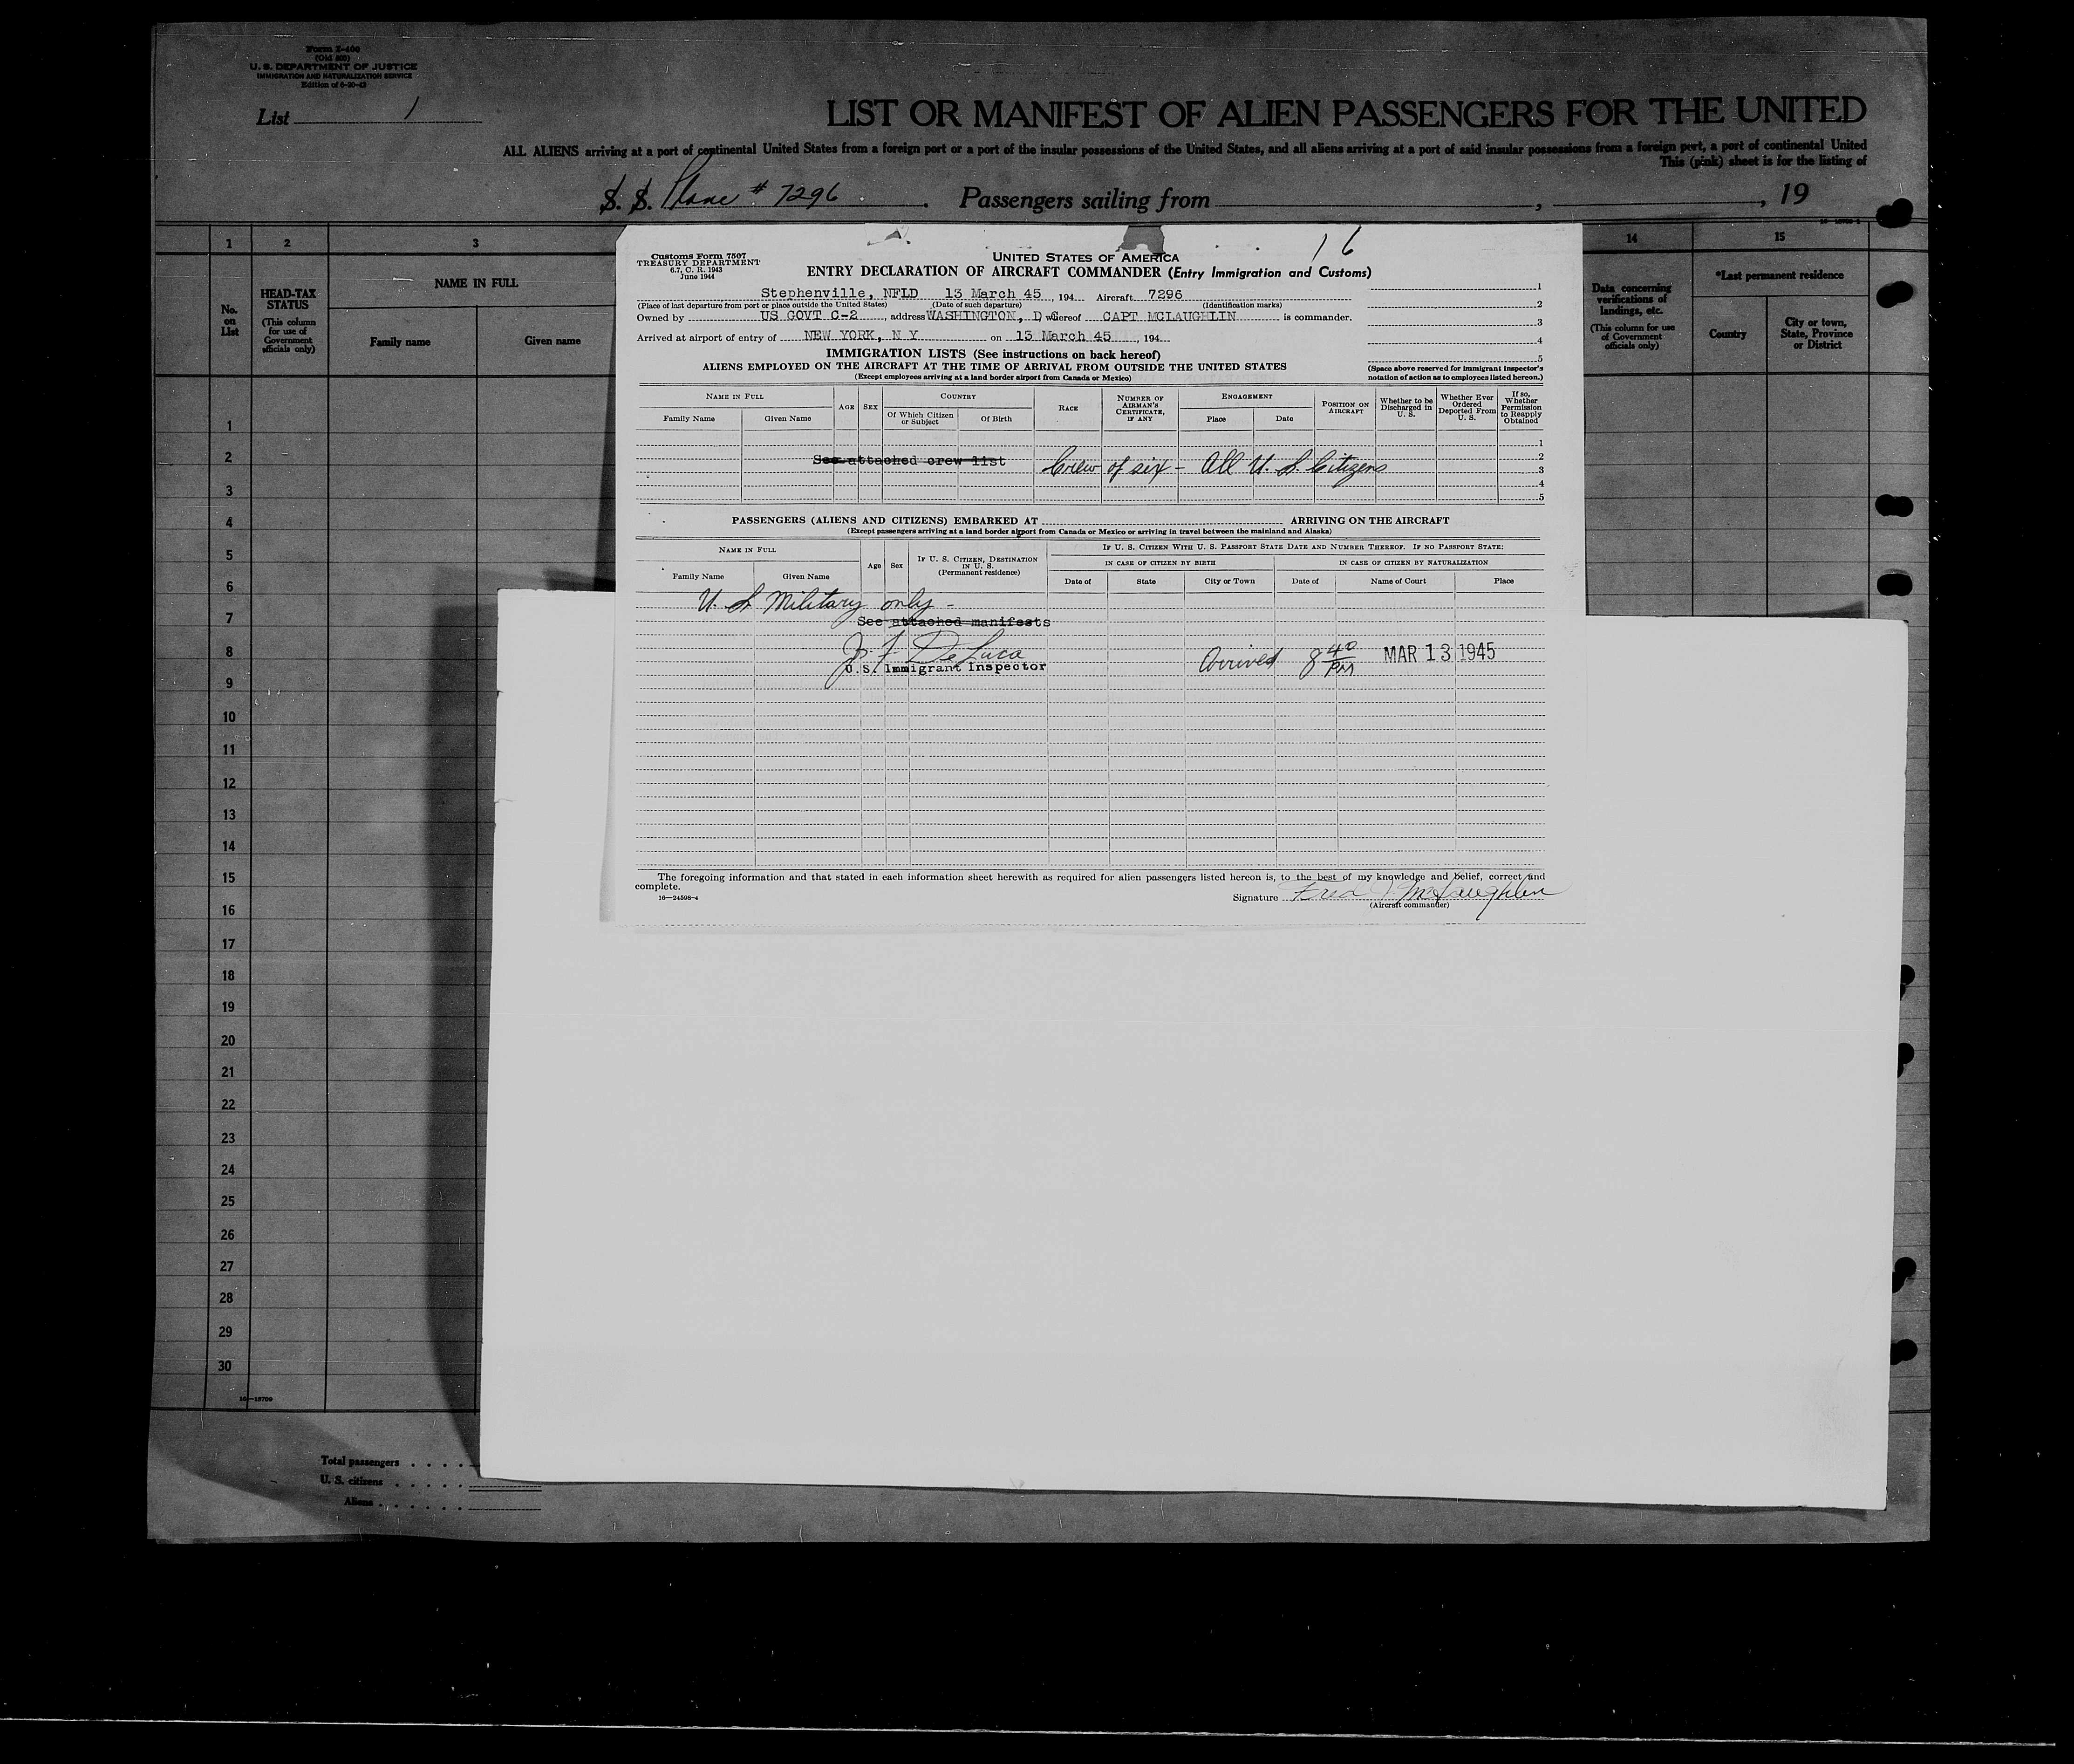 Form I-400
(Old 500)
U. S. DEPARTMENT OF JUSTICE
IMMIGRATION AND NATURALIZATION SERVICE
List 1
LIST OR MANIFEST OF ALIEN PASSENGERS FOR THE UNITED
ALL ALIENS arriving at a port of continental United States from a foreign port or a port of the insular possessions of the United States, and all aliens arriving at a port of said insular possessions from a foreign port, a port of continental United
This (pink) sheet is for the listing of
S. S. Plane # 7296 . Passengers sailing from , , 19
1 2 3 14 15
No. on List
HEAD-TAX STATUS
(This column for use of Government officials only)
NAME IN FULL
Family name Given name
Data concerning verifications of landings, etc.
(This column for use of Government officials only)
*Last permanent residence
Country
City or town, State, Province or District
1
2
3
4
5
6
7
8
9
10
11
12
13
14
15
16
17
18
19
20
21
22
23
24
25
26
27
28
29
30
Total passengers
U. S. citizens
Aliens
16
Customs Form 7507
TREASURY DEPARTMENT
6.7, C. R. 1943
June 1944
UNITED STATES OF AMERICA
ENTRY DECLARATION OF AIRCRAFT COMMANDER (Entry Immigration and Customs)
Stephenville, NFLD 13 March 45, 194 Aircraft 7296
(Place of last departure from port or place outside the United States) (Date of such departure) (Identification marks)
Owned by US GOVT C-2, address WASHINGTON, D C whereof CAPT MCLAUGHLIN is commander.
Arrived at airport of entry of NEW YORK, N Y on 13 March 45, 194
1
2
3
4
5
IMMIGRATION LISTS (See instructions on back hereof)
ALIENS EMPLOYED ON THE AIRCRAFT AT THE TIME OF ARRIVAL FROM OUTSIDE THE UNITED STATES
(Except employees arriving at a land border airport from Canada or Mexico)
(Space above reserved for immigrant inspector's notation of action as to employees listed hereon.)
NAME IN FULL
Family Name Given Name
AGE SEX
COUNTRY
Of Which Citizen or Subject Of Birth
RACE
NUMBER OF AIRMAN'S CERTIFICATE, IF ANY
ENGAGEMENT
Place Date
POSITION ON AIRCRAFT
Whether to be Discharged in U. S.
Whether Ever Ordered Deported From U. S.
If so, Whether Permission to Reapply Obtained
1
2
3
4
5
See attached crew list Crew of six - All U. S. Citizens
PASSENGERS (ALIENS AND CITIZENS) EMBARKED AT ARRIVING ON THE AIRCRAFT
(Except passengers arriving at a land border airport from Canada or Mexico or arriving in travel between the mainland and Alaska)
NAME IN FULL
Family Name Given Name
Age Sex
IF U. S. CITIZEN, DESTINATION IN U. S.
(Permanent residence)
IF U. S. CITIZEN WITH U. S. PASSPORT STATE DATE AND NUMBER THEREOF. IF NO PASSPORT STATE:
IN CASE OF CITIZEN BY BIRTH IN CASE OF CITIZEN BY NATURALIZATION
Date of State City or Town Date of Name of Court Place
U. S. Military only -
See attached manifests
J. F. De Luca
U.S. Immigrant Inspector
Arrived 8 40 PM MAR 13 1945
The foregoing information and that stated in each information sheet herewith as required for alien passengers listed hereon is, to the best of my knowledge and belief, correct and
complete.
16—24598-4
Signature Fred J. McLaughlin
(Aircraft commander)